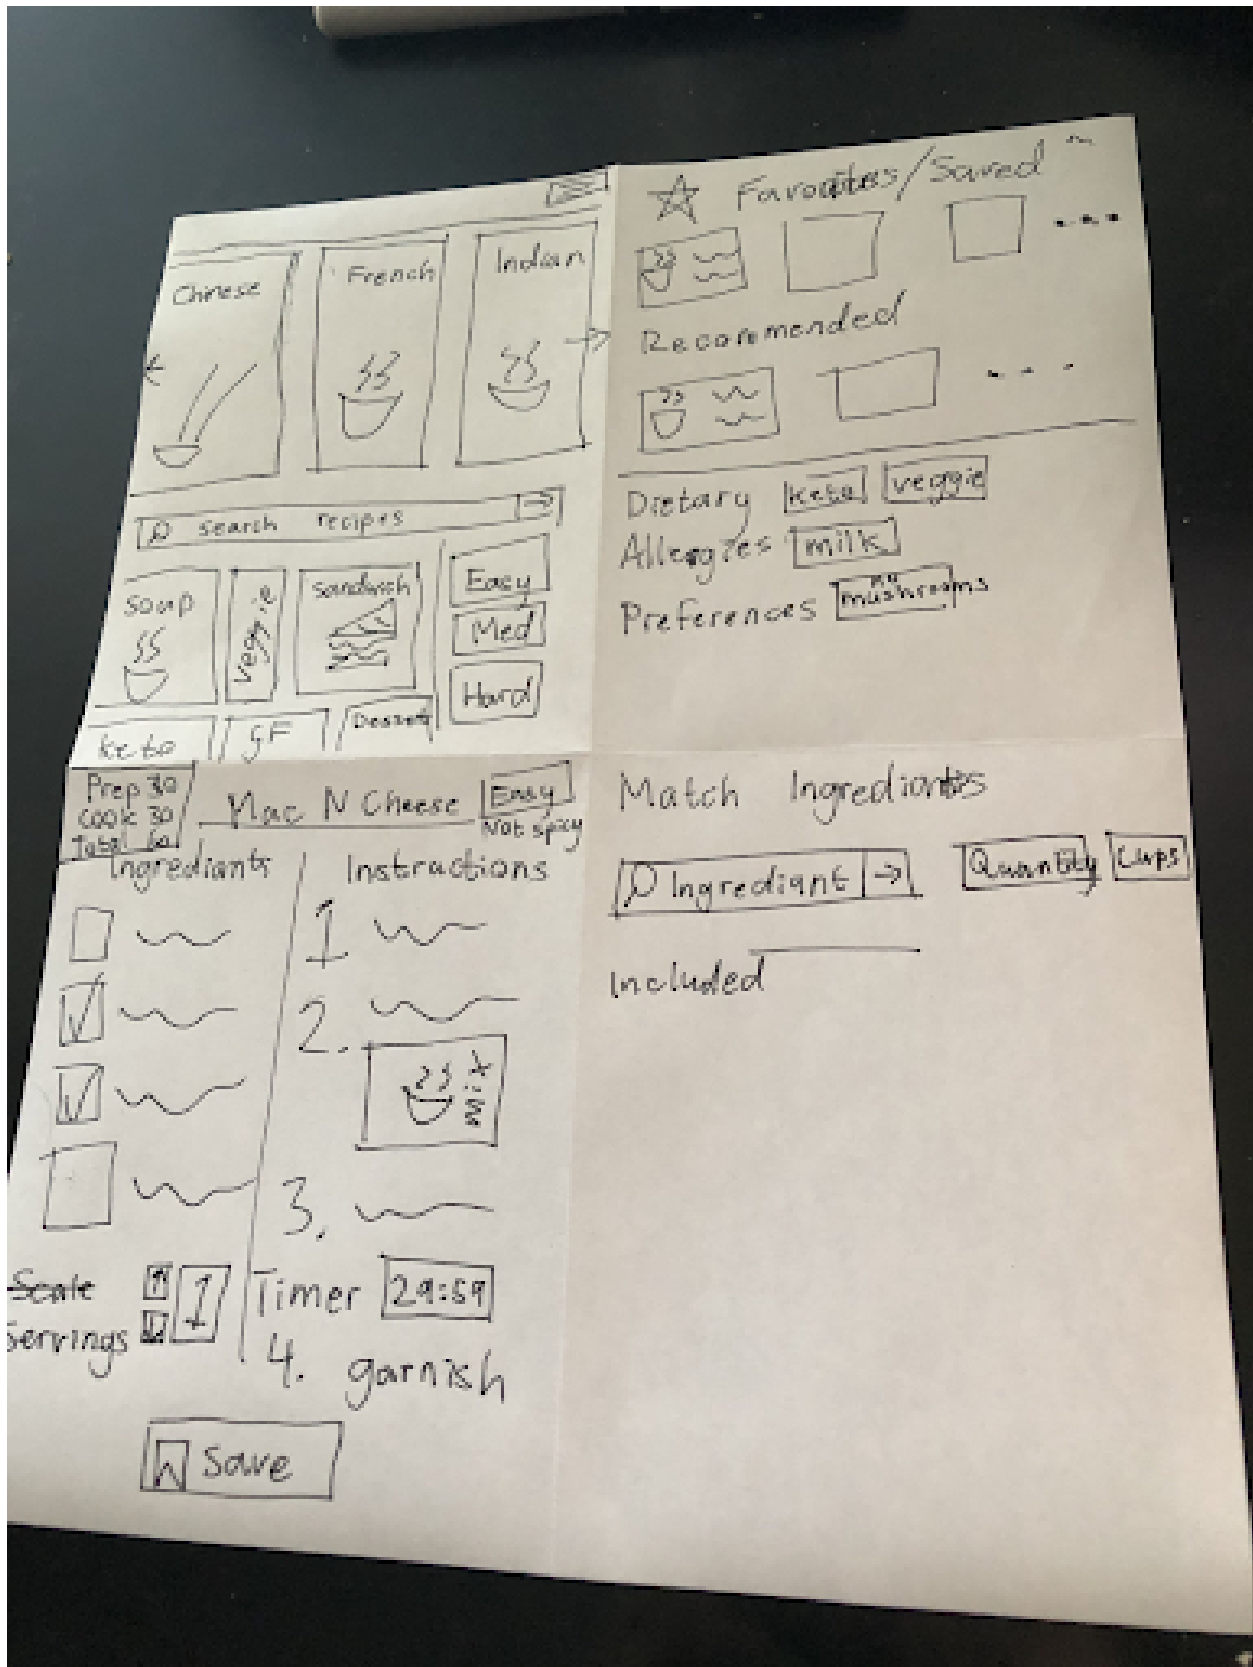 Chinese French Indian
search recipes
soup veggie Sandwich Easy
Med
Hard
keto GF Dessert
Favorites/Saved
Recommended
Dietary keto veggie
Allergies milk
Preferences no mushrooms
Prep 30
Cook 30
Total 60
Mac N Cheese Easy
Not spicy
Ingrediants Instructions
1
2.
Mix
3.
Scale
Servings 1
Timer 29:59
4. garnish
Save
Match Ingrediants
Ingrediant Quantity Cups
Included